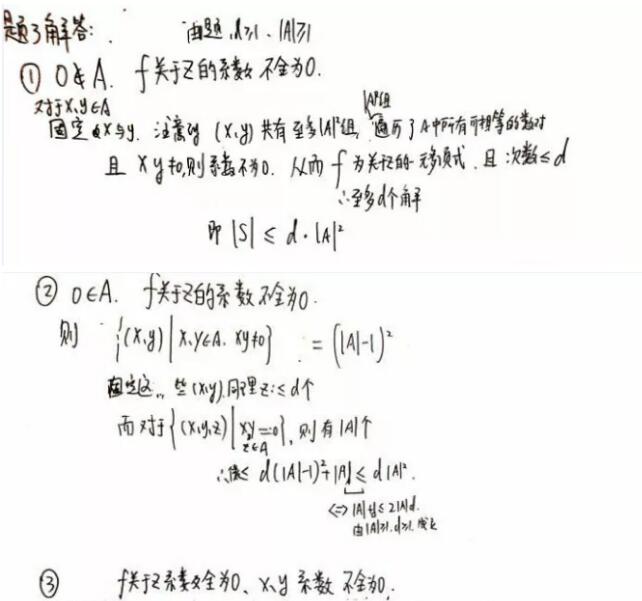 题3解答: 由题, d≥1, |A|≥1
① 0∉A. f关于Z的系数不全为0.
对于x,y∈A |A|²组
固定x与y. 注意 (x,y) 共有至多|A|²组, 遍历了A中所有可相等的数对
且 xy≠0,则系数不为0. 从而 f 为关于z的一元多项式. 且次数≤d
∴至多d个解
即 |S| ≤ d·|A|²
② 0∈A. f关于Z的系数不全为0.
则 {(x,y) | x,y∈A. xy≠0} = (|A|-1)²
固定这些(x,y).同理z:≤d个
而对于{(x,y,z) | xy=0 z∈A}, 则有|A|个
∴ ≤ d(|A|-1)²+|A| ≤ d|A|².
⟺ |A| ≤ 2|A|d.
由|A|≥1, d≥1. 成立
③ f关于Z系数全为0、x、y 系数不全为0.